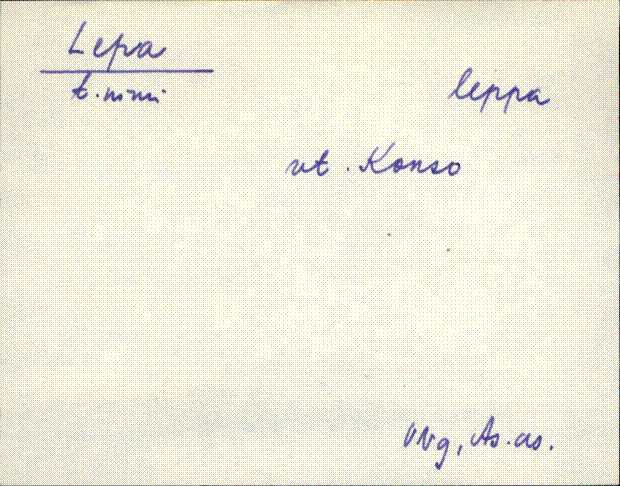 Lepa
t. nimi
leppa
vt. Konso
VNg, As. as.